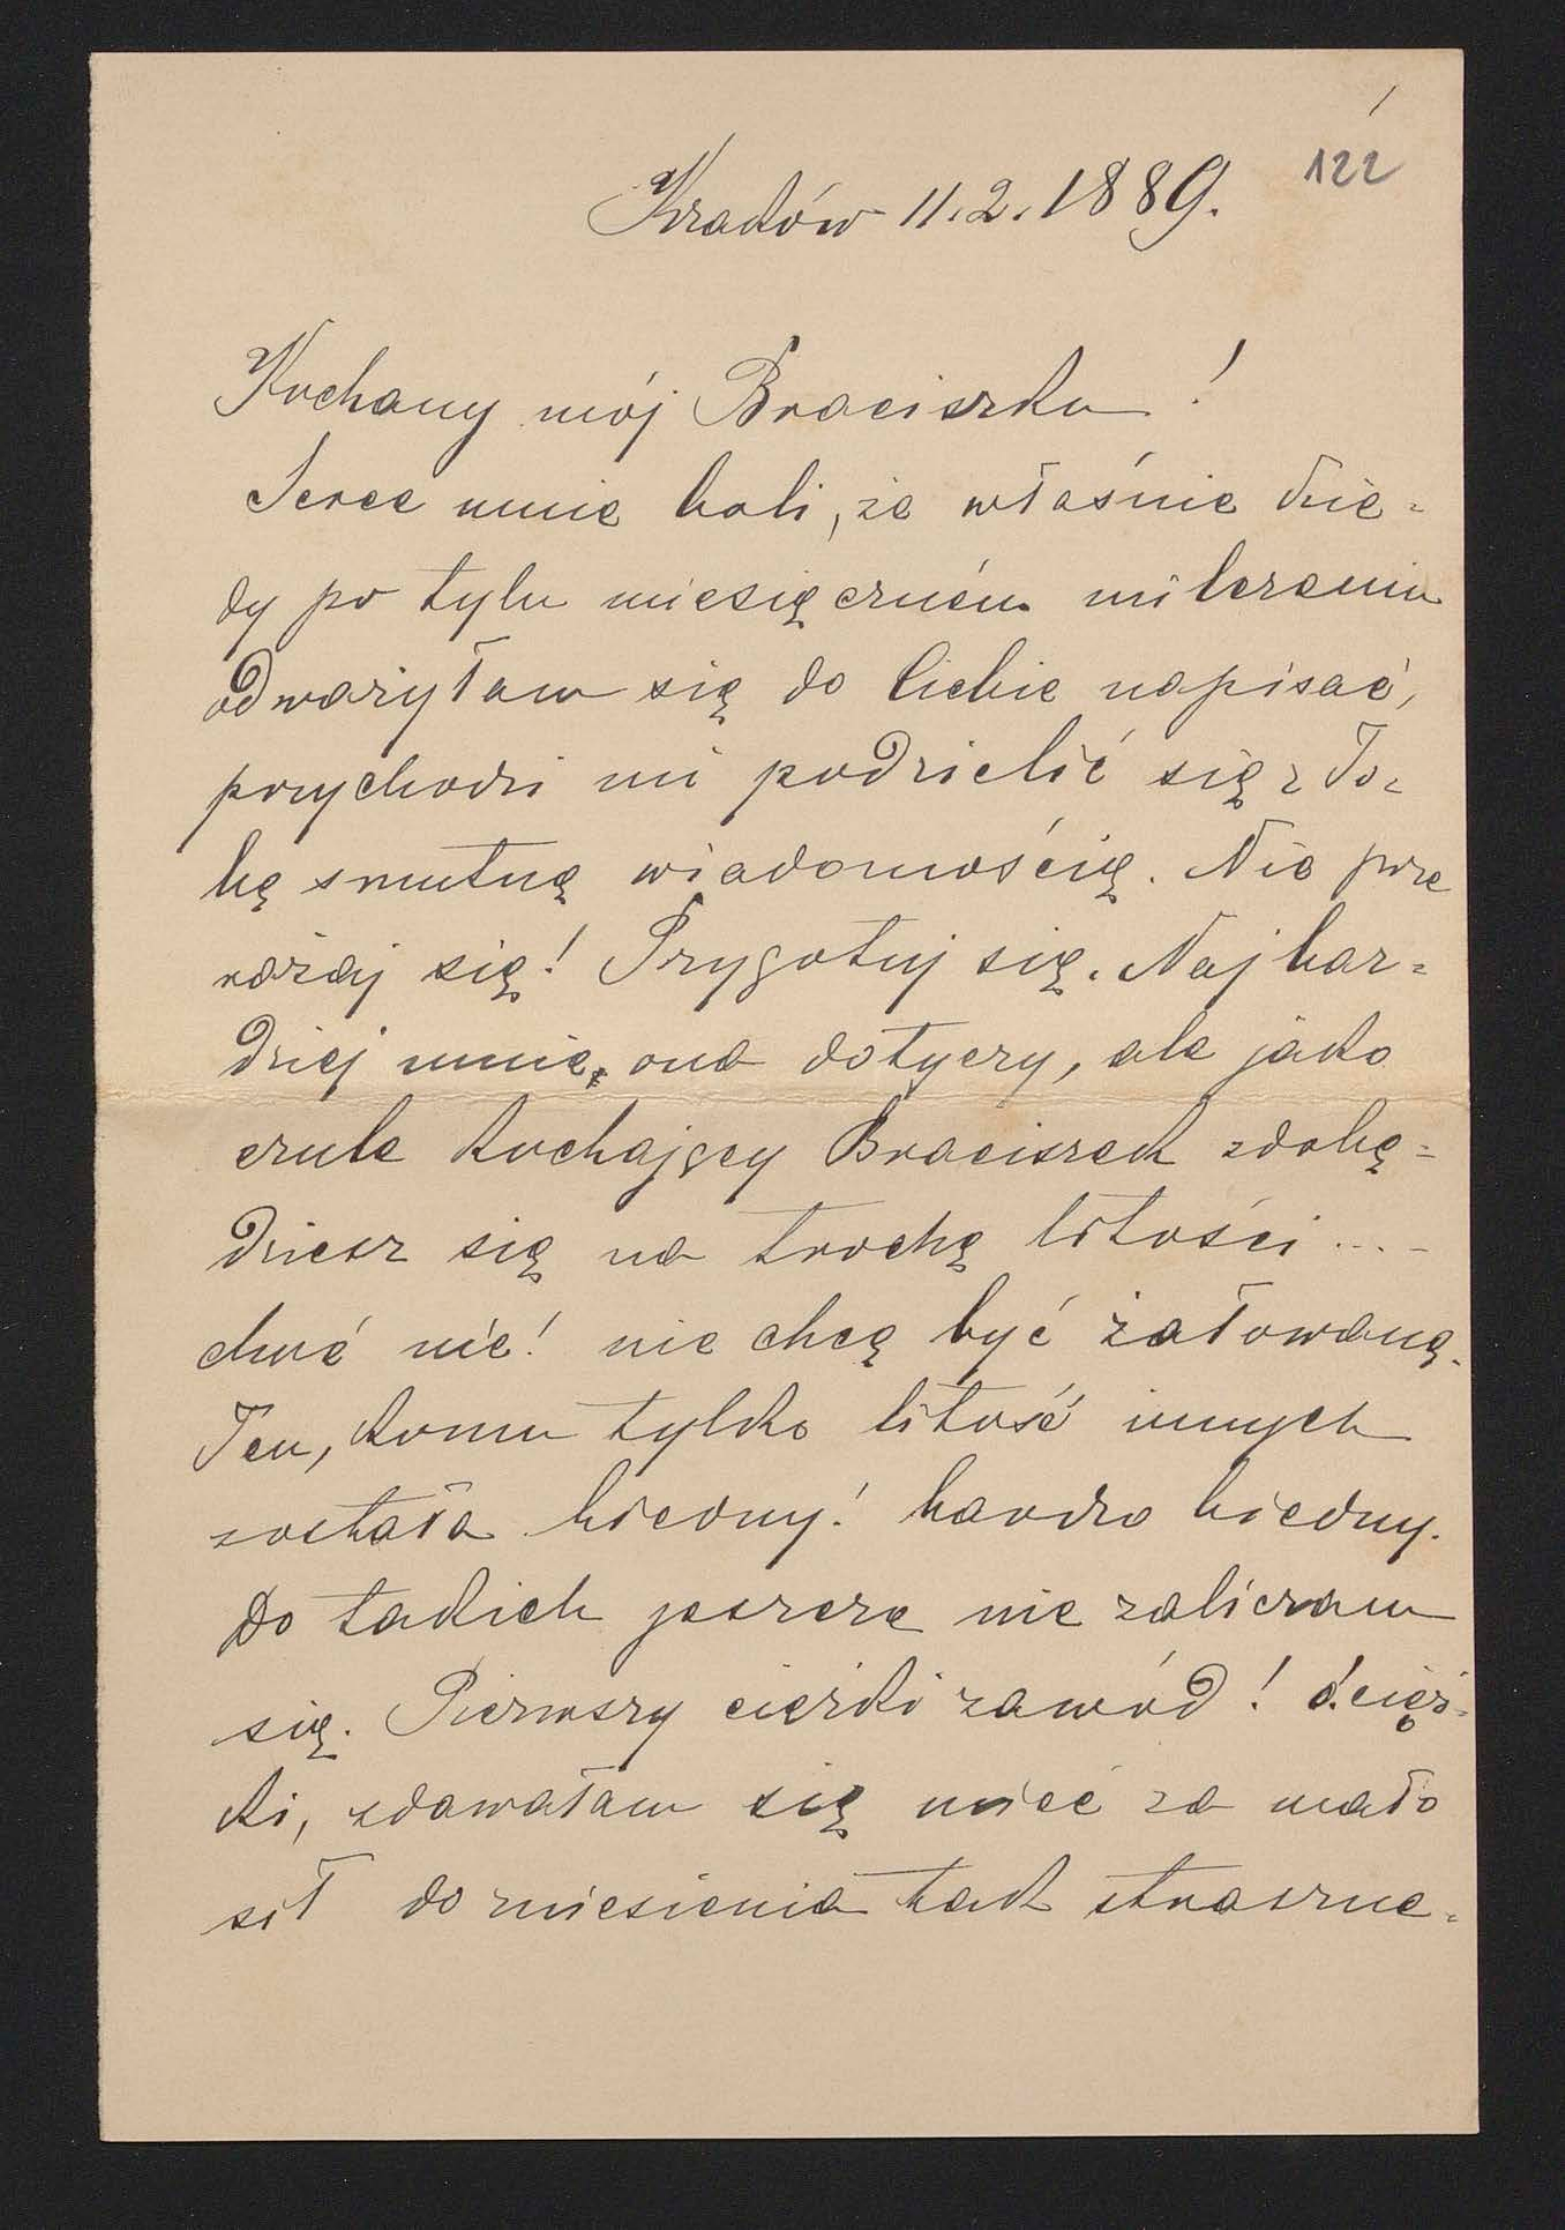 122
Kraków 11.2.1889.
Kochany mój Braciszku!
Serce mnie boli, że właśnie kie=
dy po tylu miesięczném milczeniu
odważyłam się do Ciebie napisać,
przychodzi mi podzielić się z To=
bą smutną wiadomością. Nie prze
rażaj się! Przygotuj się. Najbar=
dziej mnie, ona dotyczy, ale jako
czule kochający Braciszek zdobę=
dziesz się na trochę litości...-
choć nie! nie chcę być żałowaną.
Ten, komu tylko litość innych
została biedny! bardzo biedny.
Do takich jeszcze nie zaliczam
się. Pierwszy ciężki zawód! ó.cięż=
ki, zdawałam się mieć za mało
sił do zniesienia tak straszne=